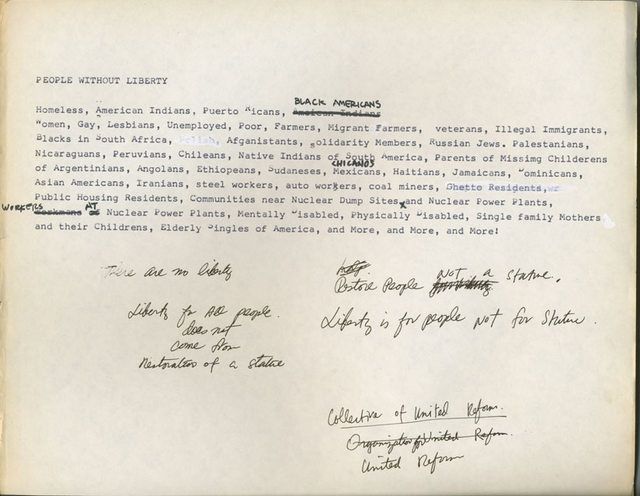 PEOPLE WITHOUT LIBERTY
BLACK AMERICANS
Homeless, American Indians, Puerto Ricans, American Indians
Women, Gay, Lesbians, Unemployed, Poor, Farmers, Migrant Farmers, veterans, Illegal Immigrants,
Blacks in South Africa, Polish, Afganistants, Solidarity Members, Russian Jews. Palestanians,
Nicaraguans, Peruvians, Chileans, Native Indians of South America, Parents of Missimg Childerens
CHICANOS
of Argentinians, Angolans, Ethiopeans, Sudaneses, Mexicans, Haitians, Jamaicans, Dominicans,
Asian Americans, Iranians, steel workers, auto workers, coal miners, Ghetto Residents,
Public Housing Residents, Communities near Nuclear Dump Sites and Nuclear Power Plants,
WORKERS AT
Nuclear Power Plants, Mentally Disabled, Physically Disabled, Single family Mothers
and their Childrens, Elderly Singles of America, and More, and More, and More!
There are no liberty
Liberty for All people.
does not
come from
Restoration of a statue
Restore People not a Statue.
Liberty is for people not for Statue.
Collective of United Reform.
Organization of United Reform.
United Reform